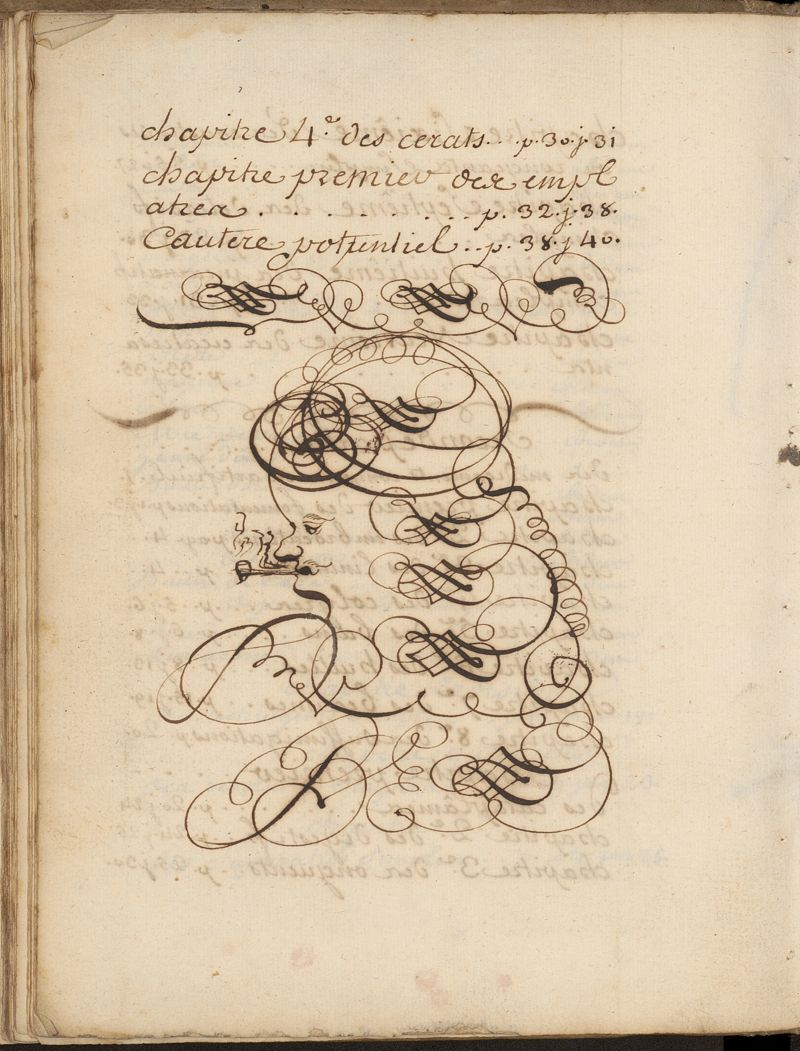 chapitre 4.e des cerats.. p. 30. j. 31
chapitre premier des empl
atres . . . . . . . . . . . p. 32. j. 38.
Cautere potentiel . . p. 38. j 40.